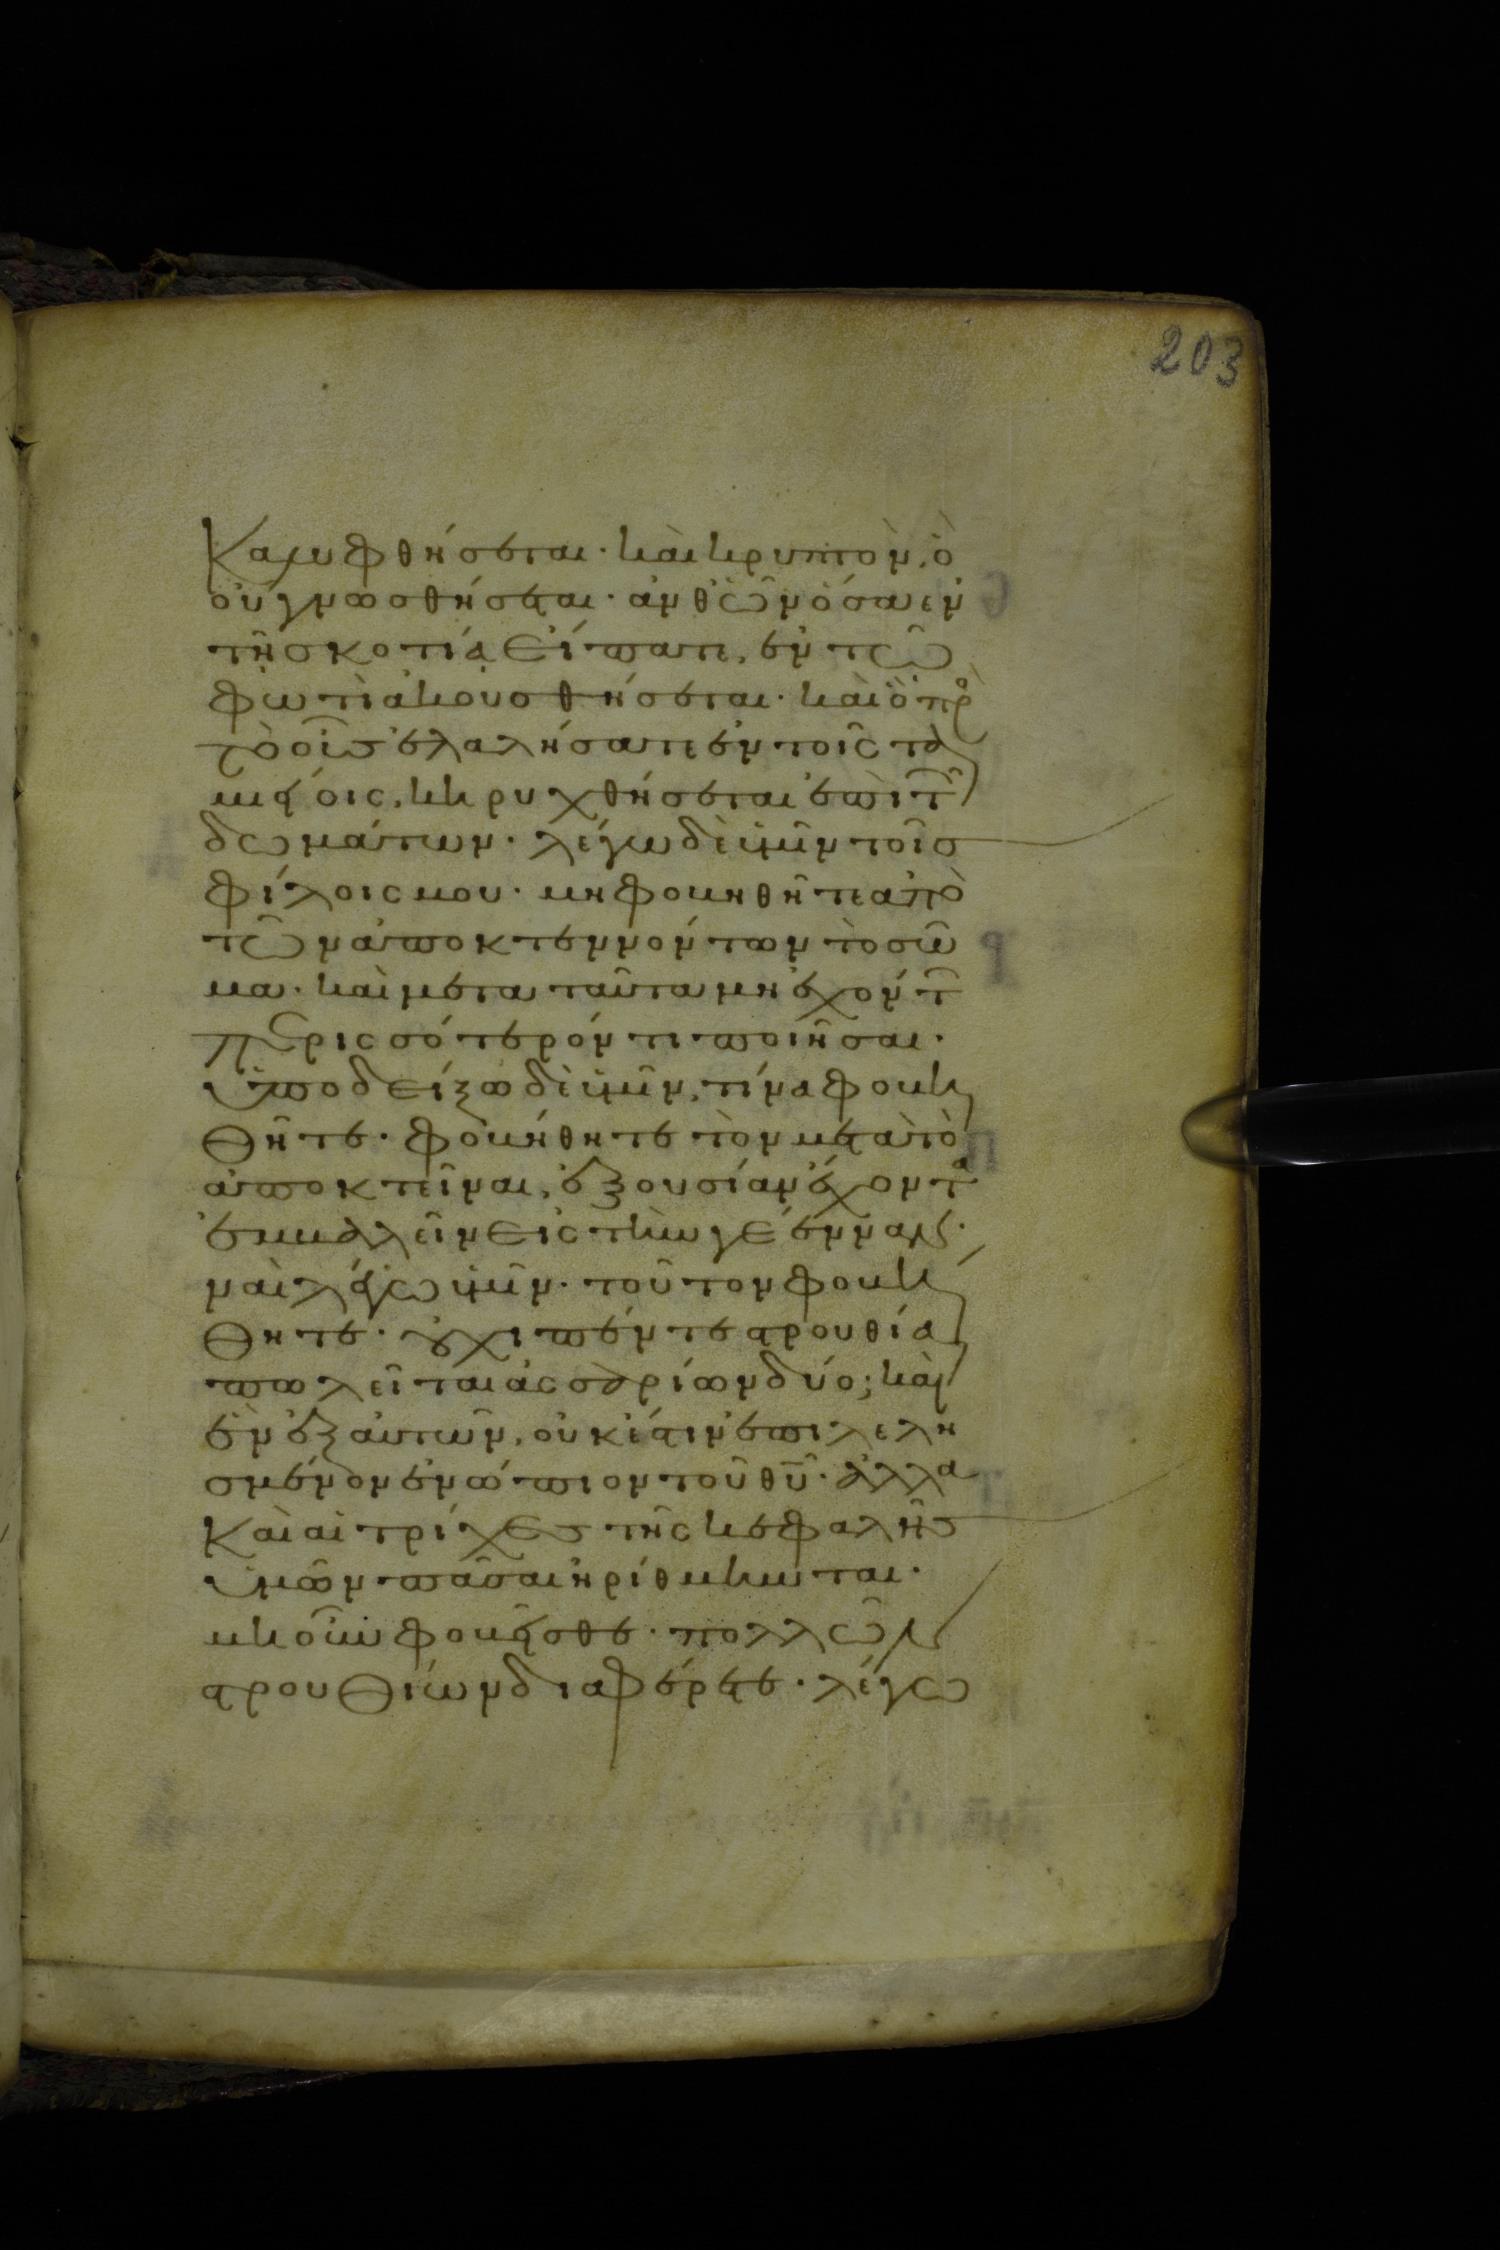 203
Καλυφθήσεται· καὶ κρυπτὸν, ὃ
οὐ γνωσθήσεται· ἀνθ ὧν ὅσα ἐν
τῆ σκοτία εἴπατε, ἐν τῶ
φωτὶ ἀκουσθήσεται· καὶ ὃ πρ
τὸ οὖς ἐλαλήσατε ἐν τοῖς τα
μείοις, κηρυχθήσεται ἐπὶ τ
δωμάτων· λέγω δὲ ὑμῖν τοῖς
φίλοις μου· μη φοβηθῆτε ἀπὸ
τῶν ἀποκτεννόντων τὸ σῶ
μα· καὶ μετα ταῦτα μη ἐχόντ
περισσότερόν τι ποιῆσαι·
Ὑποδείξω δὲ ὑμῖν, τίνα φοβη
θῆτε· φοβήθητε τὸν μετα τὸ
ἀποκτεῖναι, ἐξουσίαν ἔχοντα
ἐμβαλεῖν εἰς τὴν γέενναν·
ναὶ λέγω ὑμῖν· τοῦτον φοβή
θητε· οὐχι πέντε στρουθία
πωλεῖται ἀσσαρίων δύο; καὶ
ἓν ἐξ αὐτῶν, οὐκ έστιν ἐπιλελη
σμένον ἐνώπιον τοῦ θῦ· ἀλλα
Καὶ αἱ τρίχες τῆς κεφαλῆς
ὑμῶν πᾶσαι ἠρίθμηνται·
μὴ οὖν φοβεῖσθε· πολλῶν
στρουθίων διαφέρετε· λέγω